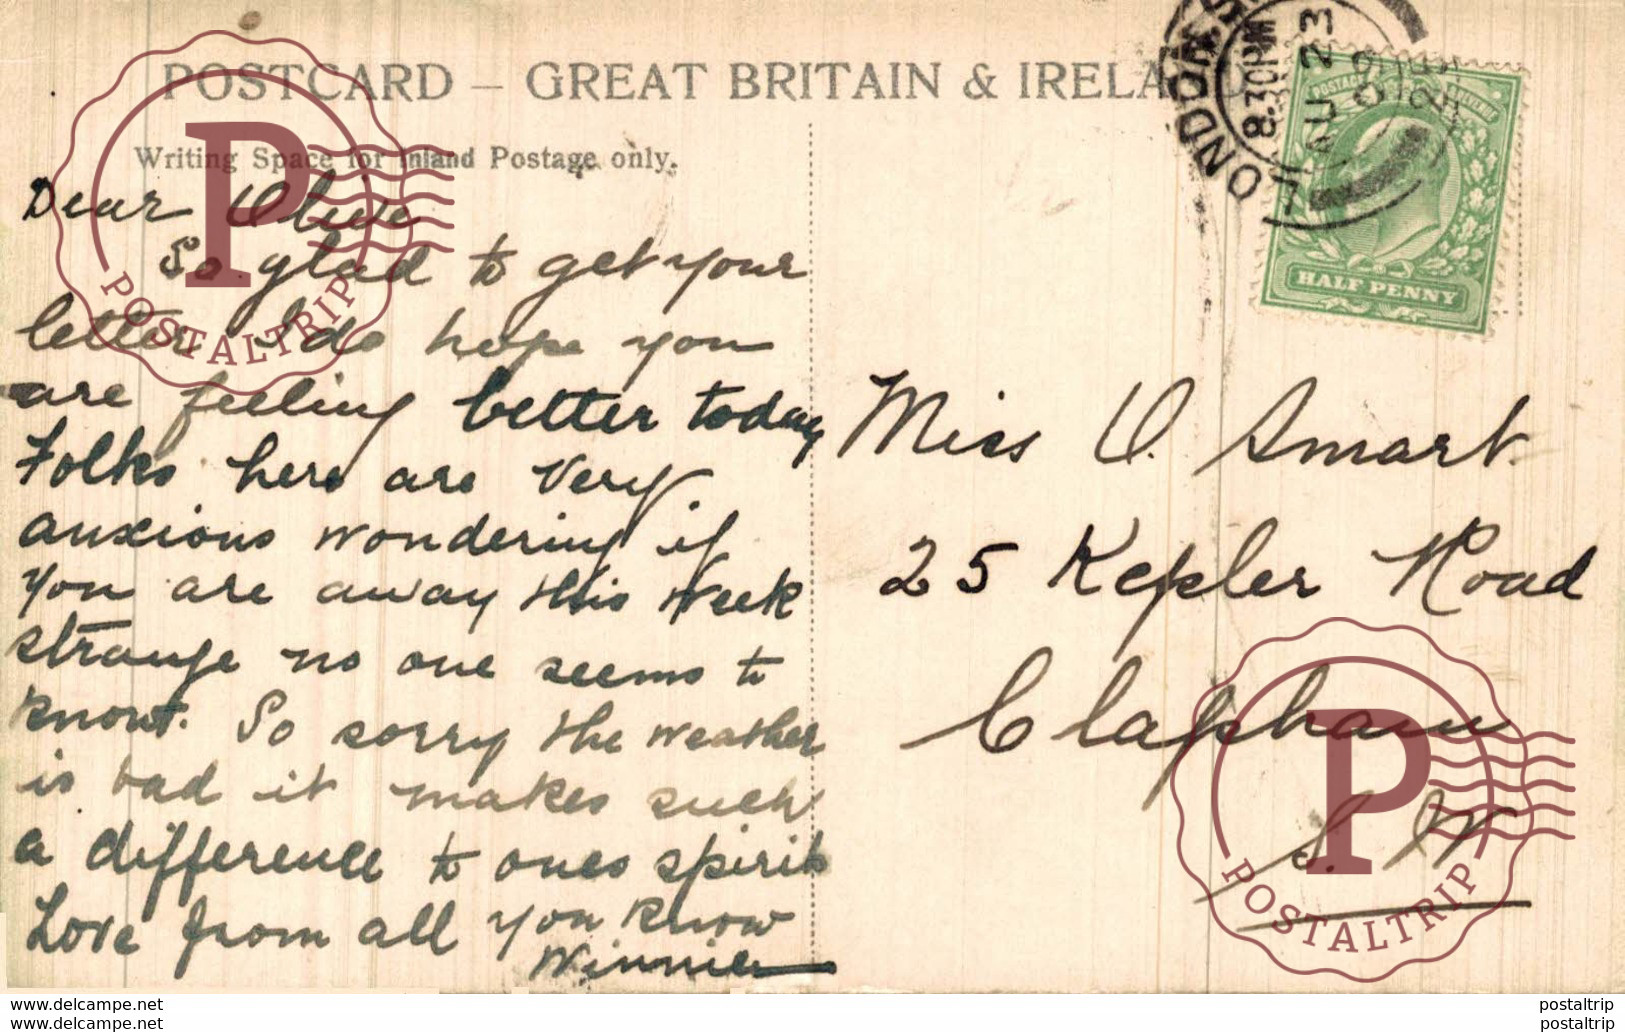 POSTCARD – GREAT BRITAIN & IRELAND
Writing Space for Inland Postage only.
Dear Olive
So glad to get your
letter I do hope you
are feeling better today
Folks here are very
anxious wondering if
you are away this week
strange no one seems to
know. So sorry the weather
is bad it makes such
a difference to ones spirits
Love from all you know
Winnie
LONDON S.W
8.30PM
AU 23
09
POSTAGE & REVENUE
HALF PENNY
Miss O. Smart.
25 Kepler Road
Clapham
S. W
P
POSTALTRIP
P
POSTALTRIP
www.delcampe.net
postaltrip
www.delcampe.net
postaltrip